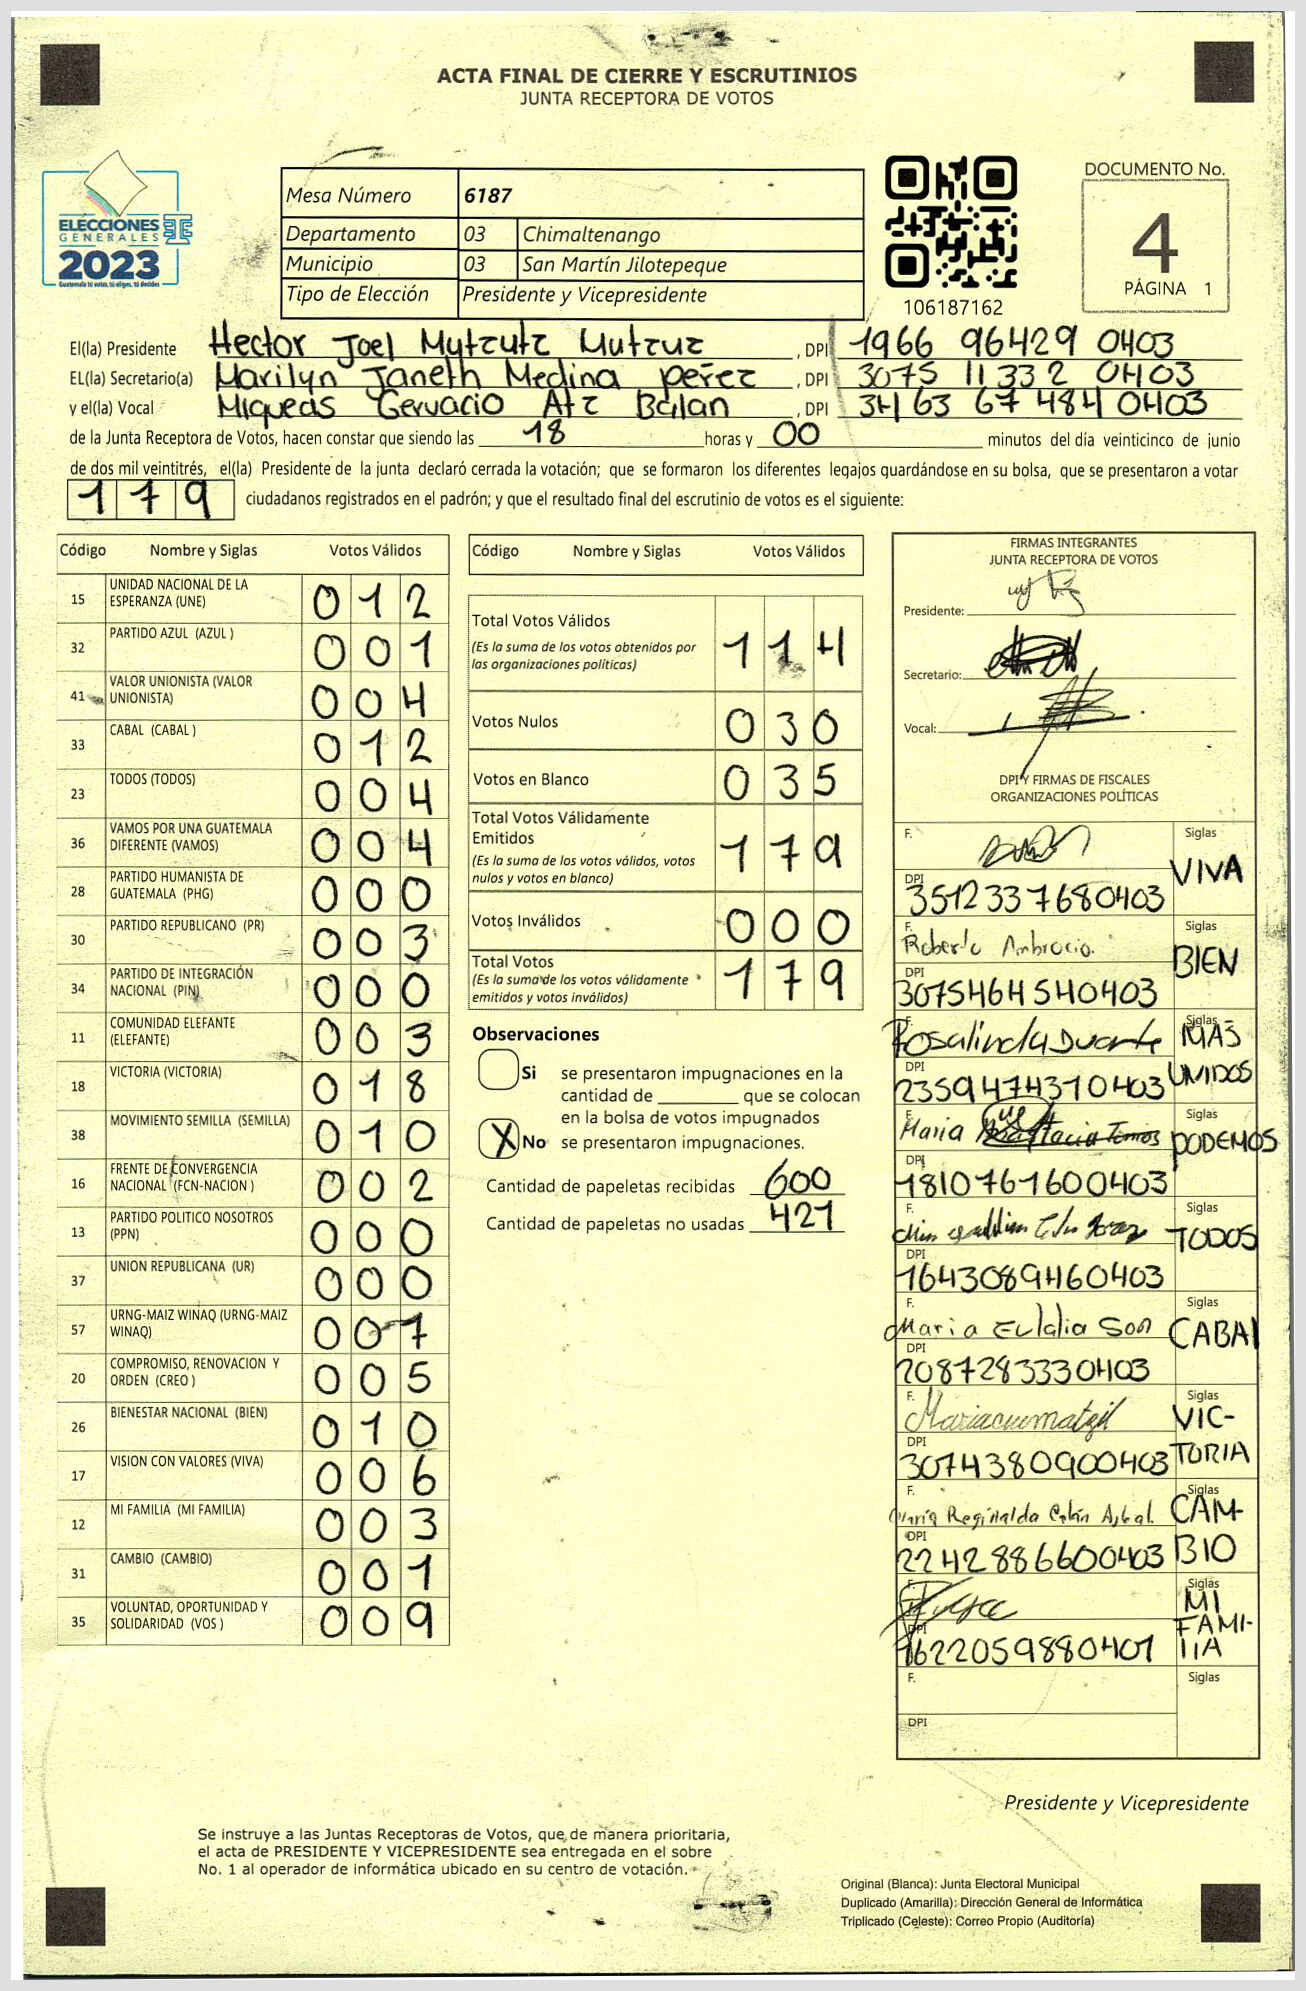 ACTA FINAL DE CIERRE Y ESCRUTINIOS
JUNTA RECEPTORA DE VOTOS
ELECCIONES
GENERALES
2023
Guatemala tú votas, tú eliges, tú decides
Mesa Número 6187
Departamento 03 Chimaltenango
Municipio 03 San Martín Jilotepeque
Tipo de Elección Presidente y Vicepresidente
106187162
DOCUMENTO No.
4
PÁGINA 1
El(la) Presidente Hector Joel Mutzutz Mutzuz, DPI 1966 96429 0403
EL(la) Secretario(a) Marilyn Janeth Medina perez, DPI 3075 11332 0403
y el(la) Vocal Miqueas Gervacio Atz Balan, DPI 3463 67484 0403
de la Junta Receptora de Votos, hacen constar que siendo las 18 horas y 00 minutos del día veinticinco de junio
de dos mil veintitrés, el(la) Presidente de la junta declaró cerrada la votación; que se formaron los diferentes legajos guardándose en su bolsa, que se presentaron a votar
179 ciudadanos registrados en el padrón; y que el resultado final del escrutinio de votos es el siguiente:
Código Nombre y Siglas Votos Válidos
15 UNIDAD NACIONAL DE LA ESPERANZA (UNE) 012
32 PARTIDO AZUL (AZUL ) 001
41 VALOR UNIONISTA (VALOR UNIONISTA) 004
33 CABAL (CABAL ) 012
23 TODOS (TODOS) 004
36 VAMOS POR UNA GUATEMALA DIFERENTE (VAMOS) 004
28 PARTIDO HUMANISTA DE GUATEMALA (PHG) 000
30 PARTIDO REPUBLICANO (PR) 003
34 PARTIDO DE INTEGRACIÓN NACIONAL (PIN) 000
11 COMUNIDAD ELEFANTE (ELEFANTE) 003
18 VICTORIA (VICTORIA) 018
38 MOVIMIENTO SEMILLA (SEMILLA) 010
16 FRENTE DE CONVERGENCIA NACIONAL (FCN-NACION ) 002
13 PARTIDO POLITICO NOSOTROS (PPN) 000
37 UNION REPUBLICANA (UR) 000
57 URNG-MAIZ WINAQ (URNG-MAIZ WINAQ) 007
20 COMPROMISO, RENOVACION Y ORDEN (CREO ) 005
26 BIENESTAR NACIONAL (BIEN) 010
17 VISION CON VALORES (VIVA) 006
12 MI FAMILIA (MI FAMILIA) 003
31 CAMBIO (CAMBIO) 001
35 VOLUNTAD, OPORTUNIDAD Y SOLIDARIDAD (VOS ) 009
Código Nombre y Siglas Votos Válidos
Total Votos Válidos 114
(Es la suma de los votos obtenidos por
las organizaciones políticas)
Votos Nulos 030
Votos en Blanco 035
Total Votos Válidamente
Emitidos 179
(Es la suma de los votos válidos, votos
nulos y votos en blanco)
Votos Inválidos 000
Total Votos 179
(Es la suma de los votos válidamente
emitidos y votos inválidos)
Observaciones
Si se presentaron impugnaciones en la
cantidad de ________ que se colocan
en la bolsa de votos impugnados
X No se presentaron impugnaciones.
Cantidad de papeletas recibidas 600
Cantidad de papeletas no usadas 421
FIRMAS INTEGRANTES
JUNTA RECEPTORA DE VOTOS
Presidente:
Secretario:
Vocal:
DPI Y FIRMAS DE FISCALES
ORGANIZACIONES POLÍTICAS
F. Siglas VIVA
DPI 3512337680403
F. Roberto Ambrocio. Siglas BIEN
DPI 3075464540403
F. Rosalinda Duarte Siglas MAS UNIDOS
DPI 2359474370403
F. Maria Siglas PODEMOS
DPI 1810761600403
F. Siglas TODOS
DPI 1643089460403
F. Maria Eulalia Son Siglas CABAl
DPI 2087283330403
F. Mariacumatzil Siglas VIC-
TORIA
DPI 3074380900403
F. María Reginalda Siglas CAM-
BIO
DPI 2242886600403
F. Siglas MI
FAMI-
lIA
DPI 1622059880401
F. Siglas
DPI
Presidente y Vicepresidente
Se instruye a las Juntas Receptoras de Votos, que de manera prioritaria,
el acta de PRESIDENTE Y VICEPRESIDENTE sea entregada en el sobre
No. 1 al operador de informática ubicado en su centro de votación.
Original (Blanca): Junta Electoral Municipal
Duplicado (Amarilla): Dirección General de Informática
Triplicado (Celeste): Correo Propio (Auditoría)